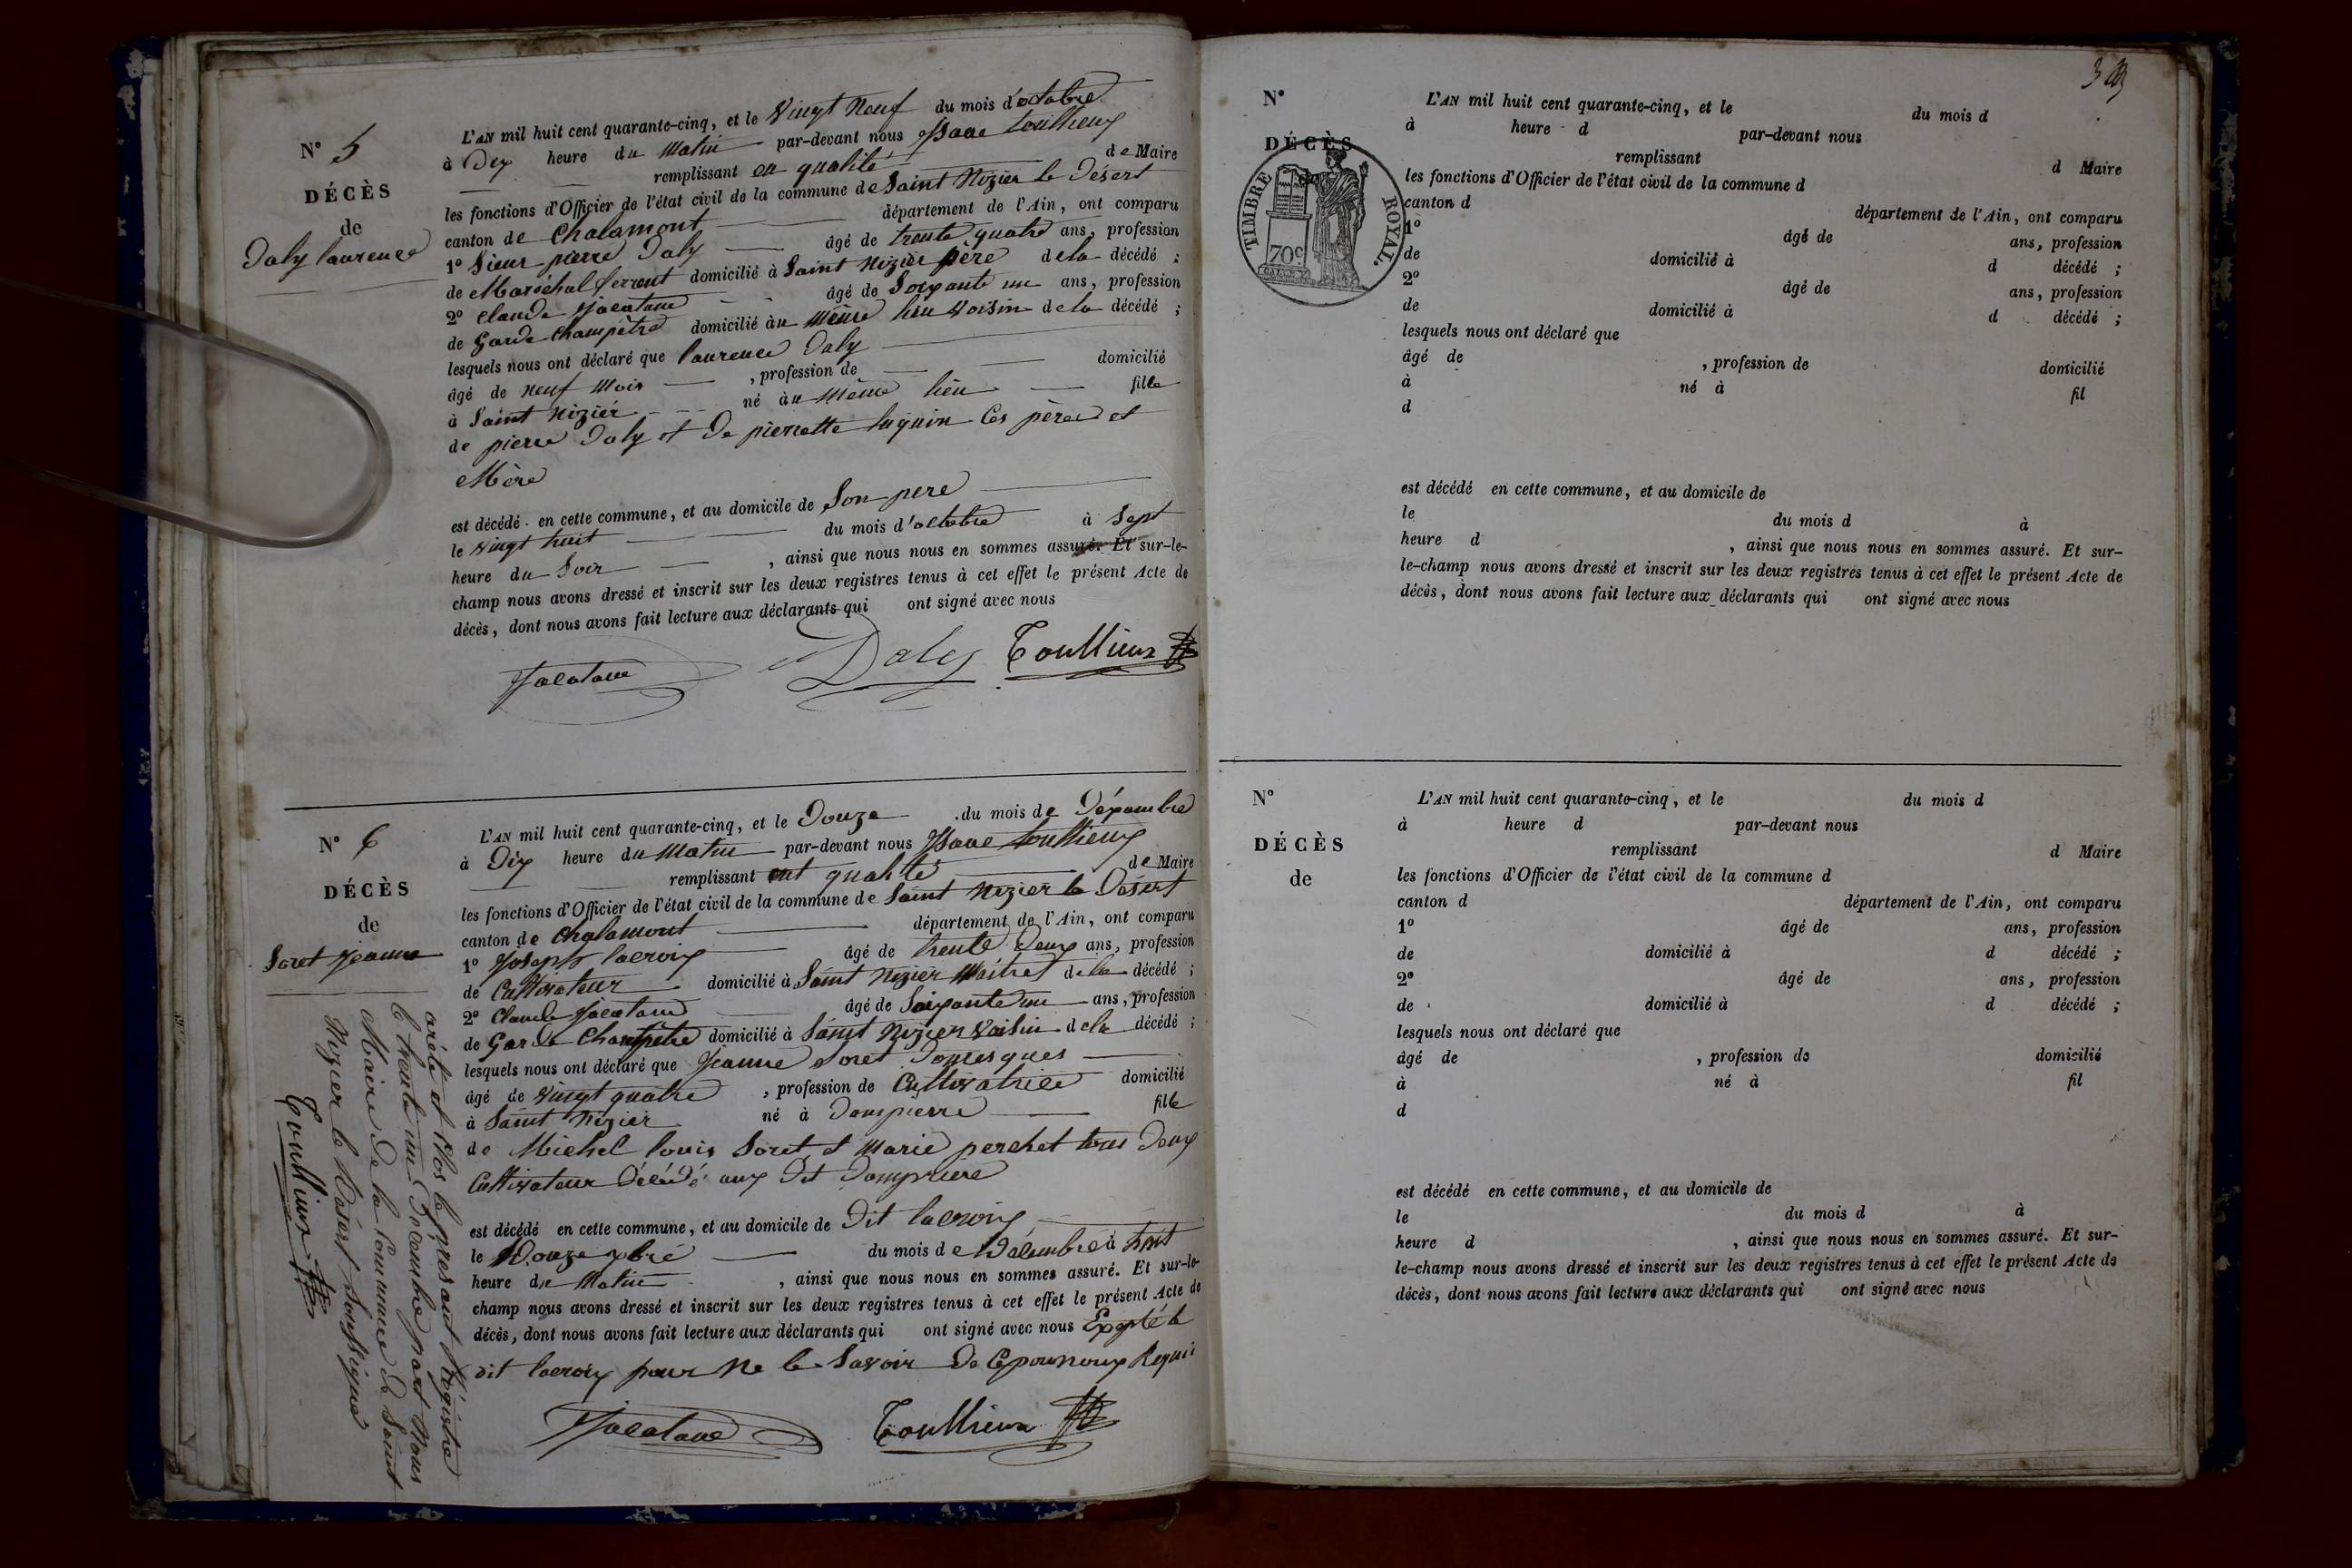 N° 5
DÉCÈS
de
Daly laurence
L'AN mil huit cent quarante-cinq, et le Vingt Neuf du mois d'octobre
à Dix heure du Matin par-devant nous
remplissant en qualité de Maire
les fonctions d'Officier de l'état civil de la commune de Saint Nizier le Désert
canton de Chalamont département de l'Ain, ont comparu
1° Sieur pierre Daly âgé de trente quatre ans, profession
de Maréchal ferrent domicilié à Saint Nizier père de la décédé ;
2° Claude Jacatane âgé de Soixante un ans, profession
de Garde Champêtre domicilié au Même lieu Voisin de la décédé ;
lesquels nous ont déclaré que laurence Daly
âgé de neuf Mois , profession de domicilié
à Saint Nizier né au Même lieu fille
de pierre Daly et de pierrette luquin Ces père et
Mère
est décédé en cette commune, et au domicile de Son pere
le Vingt huit du mois d'octobre à Sept
heure du Soir , ainsi que nous nous en sommes assuré. Et sur-le-
champ nous avons dressé et inscrit sur les deux registres tenus à cet effet le présent Acte de
décès, dont nous avons fait lecture aux déclarants qui ont signé avec nous
Jacatane Daly Toullieux
N° 6
DÉCÈS
de
Soret Jeanne
L'AN mil huit cent quarante-cinq, et le Douze du mois de Décembre
à Dix heure du Matin par-devant nous Isaac toullieux
remplissant ent qualité de Maire
les fonctions d'Officier de l'état civil de la commune de Saint Nizier le Désert
canton de Chalamont département de l'Ain, ont comparu
1° Joseph lacroix âgé de trente Deux ans, profession
de Cultivateur domicilié à Saint Nizier Maitret de la décédé ;
2° Claude Jacatane âgé de Soixante un ans, profession
de Garde Champêtre domicilié à Saint Nizier Voisin de la décédé ;
lesquels nous ont déclaré que Jeanne Soret
âgé de Vingt quatre , profession de Cultivatrice domicilié
à Saint Nizier né à Dompierre fille
de Michel louis Soret et Marie perchet tous Deux
Cultivateur Décédé aux Dit Dompierre
est décédé en cette commune, et au domicile de Dit lacroix
le Douze du mois de Décembre à
heure du Matin , ainsi que nous nous en sommes assuré. Et sur-le-
champ nous avons dressé et inscrit sur les deux registres tenus à cet effet le présent Acte de
décès, dont nous avons fait lecture aux déclarants qui ont signé avec nous Exepté le
dit lacroix pour Ne le Savoir De Requis
Jacatane Toullieux
arété et Clos le présant Régistre
le trente un Décembre part Nous
Maire de la Commune de Saint
Nizier le Désert Soussigné
Toullieux
N°
DÉCÈS
TIMBRE ROYAL.
70c
L'AN mil huit cent quarante-cinq, et le du mois d
à heure d par-devant nous
remplissant d Maire
les fonctions d'Officier de l'état civil de la commune d
canton d département de l'Ain, ont comparu
1° âgé de ans, profession
de domicilié à d décédé ;
2° âgé de ans, profession
de domicilié à d décédé ;
lesquels nous ont déclaré que
âgé de , profession de domicilié
à né à fil
d
est décédé en cette commune, et au domicile de
le du mois d à
heure d , ainsi que nous nous en sommes assuré. Et sur-
le-champ nous avons dressé et inscrit sur les deux registres tenus à cet effet le présent Acte de
décès, dont nous avons fait lecture aux déclarants qui ont signé avec nous
N°
DÉCÈS
de
L'AN mil huit cent quarante-cinq, et le du mois d
à heure d par-devant nous
remplissant d Maire
les fonctions d'Officier de l'état civil de la commune d
canton d département de l'Ain, ont comparu
1° âgé de ans, profession
de domicilié à d décédé ;
2° âgé de ans, profession
de domicilié à d décédé ;
lesquels nous ont déclaré que
âgé de , profession de domicilié
à né à fil
d
est décédé en cette commune, et au domicile de
le du mois d à
heure d , ainsi que nous nous en sommes assuré. Et sur-
le-champ nous avons dressé et inscrit sur les deux registres tenus à cet effet le présent Acte de
décès, dont nous avons fait lecture aux déclarants qui ont signé avec nous